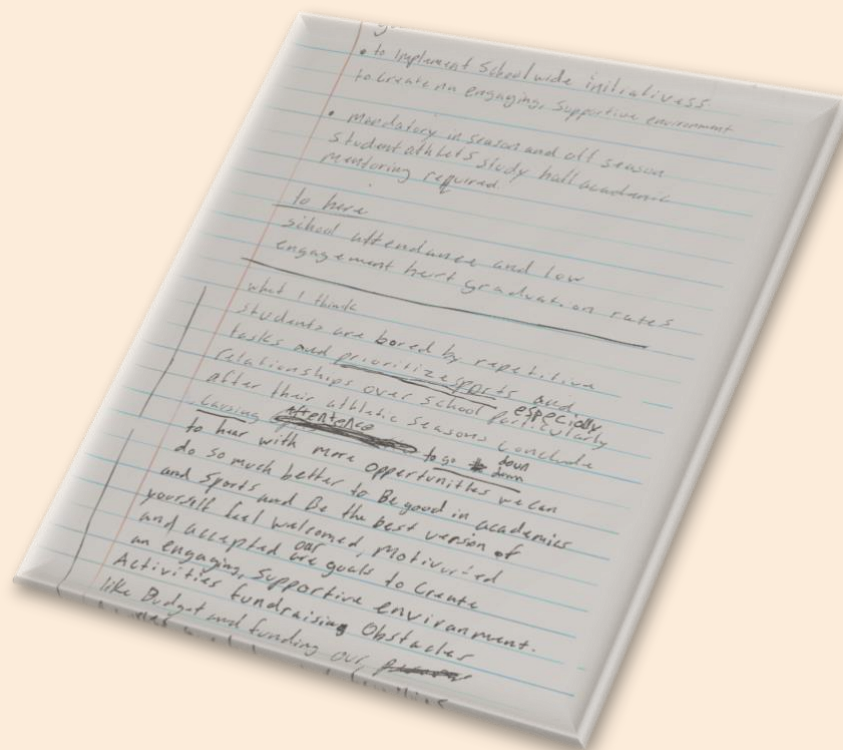 • to implement School wide initiativess
to create an engaging, supportive environment
• mandatory in season and off season
student athlets study hall academic
mentoring required.
to here
school attendance and low
engagement hurt graduation rates
what I think
students are bored by repetitive
tasks and prioritize sports and
relationships over school particularly especially
after their athletic seasons conclude
causing to go down
to hear with more opportunities we can
do so much better to Be good in academics
and sports and Be the best version of
yourself feel welcomed, motivated
and accepted our goals to create
an engaging, supportive environment.
Activities fundraising Obstacles
like Budget and funding our